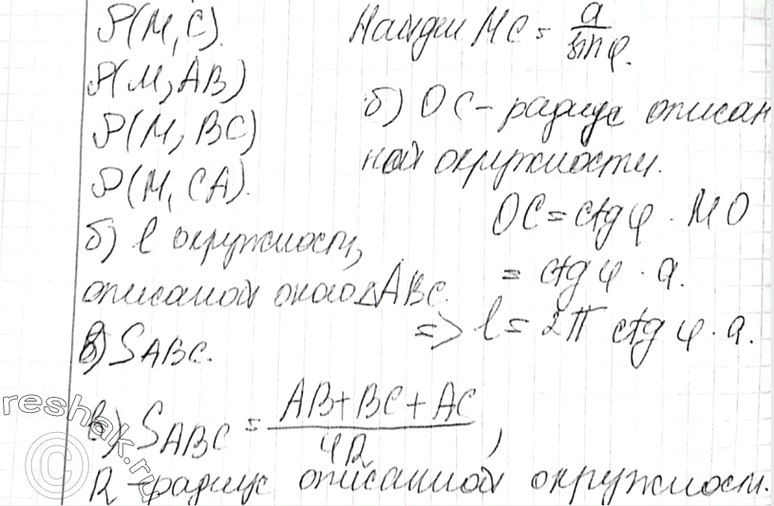 ρ(M, C). Найдем MC = a/sin φ.
ρ(M, AB)
ρ(M, BC)
ρ(M, CA).
б) l окружност,
описаной около ΔABC.
в) S ABC.
б) OC - радиус описан
ной окружности.
OC = ctg φ · MO
= ctg φ · a.
=> l = 2π ctg φ · a.
в) S ABC = AB+BC+AC/4R ,
R - радиус описанной окружност.
reshak.ru